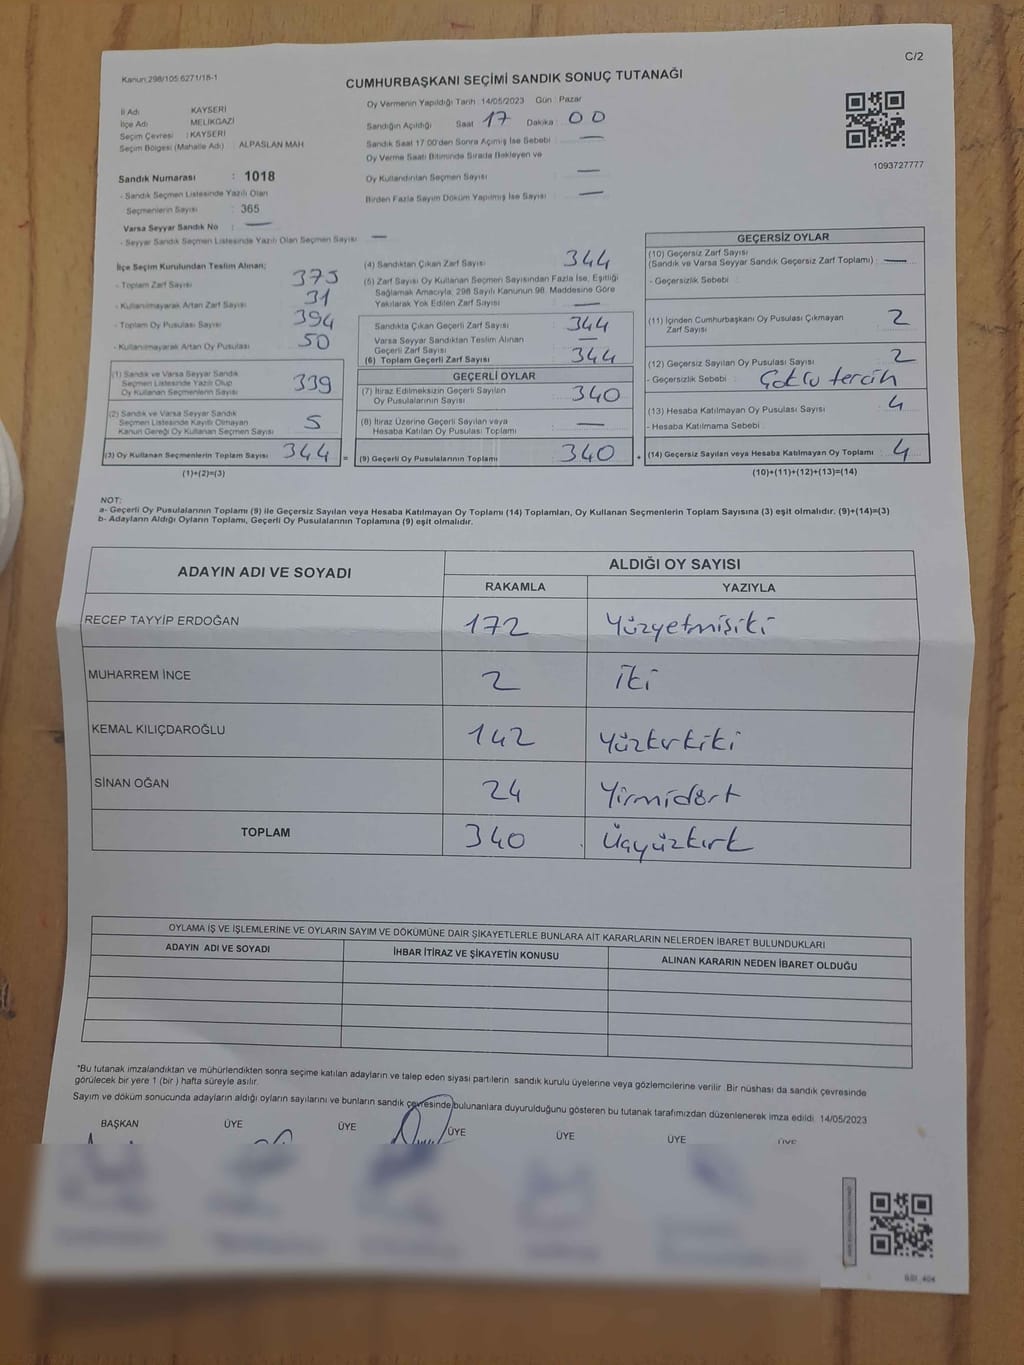 C/2
Kanun:298/105:6271/18-1
CUMHURBAŞKANI SEÇİMİ SANDIK SONUÇ TUTANAĞI
İl Adı KAYSERİ
İlçe Adı MELİKGAZİ
Seçim Çevresi : KAYSERİ
Seçim Bölgesi (Mahalle Adı) : ALPASLAN MAH
Sandık Numarası : 1018
- Sandık Seçmen Listesinde Yazılı Olan
Seçmenlerin Sayısı : 365
Varsa Seyyar Sandık No : —
- Seyyar Sandık Seçmen Listesinde Yazılı Olan Seçmen Sayısı —
Oy Vermenin Yapıldığı Tarih :14/05/2023 Gün : Pazar
Sandığın Açıldığı Saat 17 Dakika : 00
Sandık Saat 17:00'den Sonra Açılmış İse Sebebi : —
Oy Verme Saati Bitiminde Sırada Bekleyen ve
Oy Kullandırılan Seçmen Sayısı —
Birden Fazla Sayım Döküm Yapılmış İse Sayısı —
1093727777
İlçe Seçim Kurulundan Teslim Alınan;
- Toplam Zarf Sayısı 375
- Kullanılmayarak Artan Zarf Sayısı 31
- Toplam Oy Pusulası Sayısı 394
- Kullanılmayarak Artan Oy Pusulası 50
(1) Sandık ve Varsa Seyyar Sandık
Seçmen Listesinde Yazılı Olup
Oy Kullanan Seçmenlerin Sayısı 339
(2) Sandık ve Varsa Seyyar Sandık
Seçmen Listesinde Kayıtlı Olmayan
Kanun Gereği Oy Kullanan Seçmen Sayısı 5
(3) Oy Kullanan Seçmenlerin Toplam Sayısı 344 =
(1)+(2)=(3)
(4) Sandıktan Çıkan Zarf Sayısı 344
(5) Zarf Sayısı Oy Kullanan Seçmen Sayısından Fazla İse, Eşitliği
Sağlamak Amacıyla; 298 Sayılı Kanunun 98. Maddesine Göre
Yakılarak Yok Edilen Zarf Sayısı —
Sandıkta Çıkan Geçerli Zarf Sayısı 344
Varsa Seyyar Sandıktan Teslim Alınan
Geçerli Zarf Sayısı —
(6) Toplam Geçerli Zarf Sayısı 344
GEÇERLİ OYLAR
(7) İtiraz Edilmeksizin Geçerli Sayılan
Oy Pusulalarının Sayısı 340
(8) İtiraz Üzerine Geçerli Sayılan veya
Hesaba Katılan Oy Pusulası Toplamı —
(9) Geçerli Oy Pusulalarının Toplamı 340 +
GEÇERSİZ OYLAR
(10) Geçersiz Zarf Sayısı
(Sandık ve Varsa Seyyar Sandık Geçersiz Zarf Toplamı) : —
- Geçersizlik Sebebi
(11) İçinden Cumhurbaşkanı Oy Pusulası Çıkmayan
Zarf Sayısı 2
(12) Geçersiz Sayılan Oy Pusulası Sayısı 2
- Geçersizlik Sebebi : Çoklu tercih
(13) Hesaba Katılmayan Oy Pusulası Sayısı 4
- Hesaba Katılmama Sebebi
(14) Geçersiz Sayılan veya Hesaba Katılmayan Oy Toplamı 4
(10)+(11)+(12)+(13)=(14)
NOT:
a- Geçerli Oy Pusulalarının Toplamı (9) ile Geçersiz Sayılan veya Hesaba Katılmayan Oy Toplamı (14) Toplamları, Oy Kullanan Seçmenlerin Toplam Sayısına (3) eşit olmalıdır. (9)+(14)=(3)
b- Adayların Aldığı Oyların Toplamı, Geçerli Oy Pusulalarının Toplamına (9) eşit olmalıdır.
ADAYIN ADI VE SOYADI ALDIĞI OY SAYISI
RAKAMLA YAZIYLA
RECEP TAYYİP ERDOĞAN 172 Yüzyetmişiki
MUHARREM İNCE 2 iki
KEMAL KILIÇDAROĞLU 142 Yüzkırkiki
SİNAN OĞAN 24 Yirmidört
TOPLAM 340 Üçyüzkırk
OYLAMA İŞ VE İŞLEMLERİNE VE OYLARIN SAYIM VE DÖKÜMÜNE DAİR ŞİKAYETLERLE BUNLARA AİT KARARLARIN NELERDEN İBARET BULUNDUKLARI
ADAYIN ADI VE SOYADI İHBAR İTİRAZ VE ŞİKAYETİN KONUSU ALINAN KARARIN NEDEN İBARET OLDUĞU
*Bu tutanak imzalandıktan ve mühürlendikten sonra seçime katılan adayların ve talep eden siyasi partilerin sandık kurulu üyelerine veya gözlemcilerine verilir. Bir nüshası da sandık çevresinde
görülecek bir yere 1 (bir ) hafta süreyle asılır.
Sayım ve döküm sonucunda adayların aldığı oyların sayılarını ve bunların sandık çevresinde bulunanlara duyurulduğunu gösteren bu tutanak tarafımızdan düzenlenerek imza edildi. 14/05/2023
BAŞKAN ÜYE ÜYE ÜYE ÜYE ÜYE ÜYE